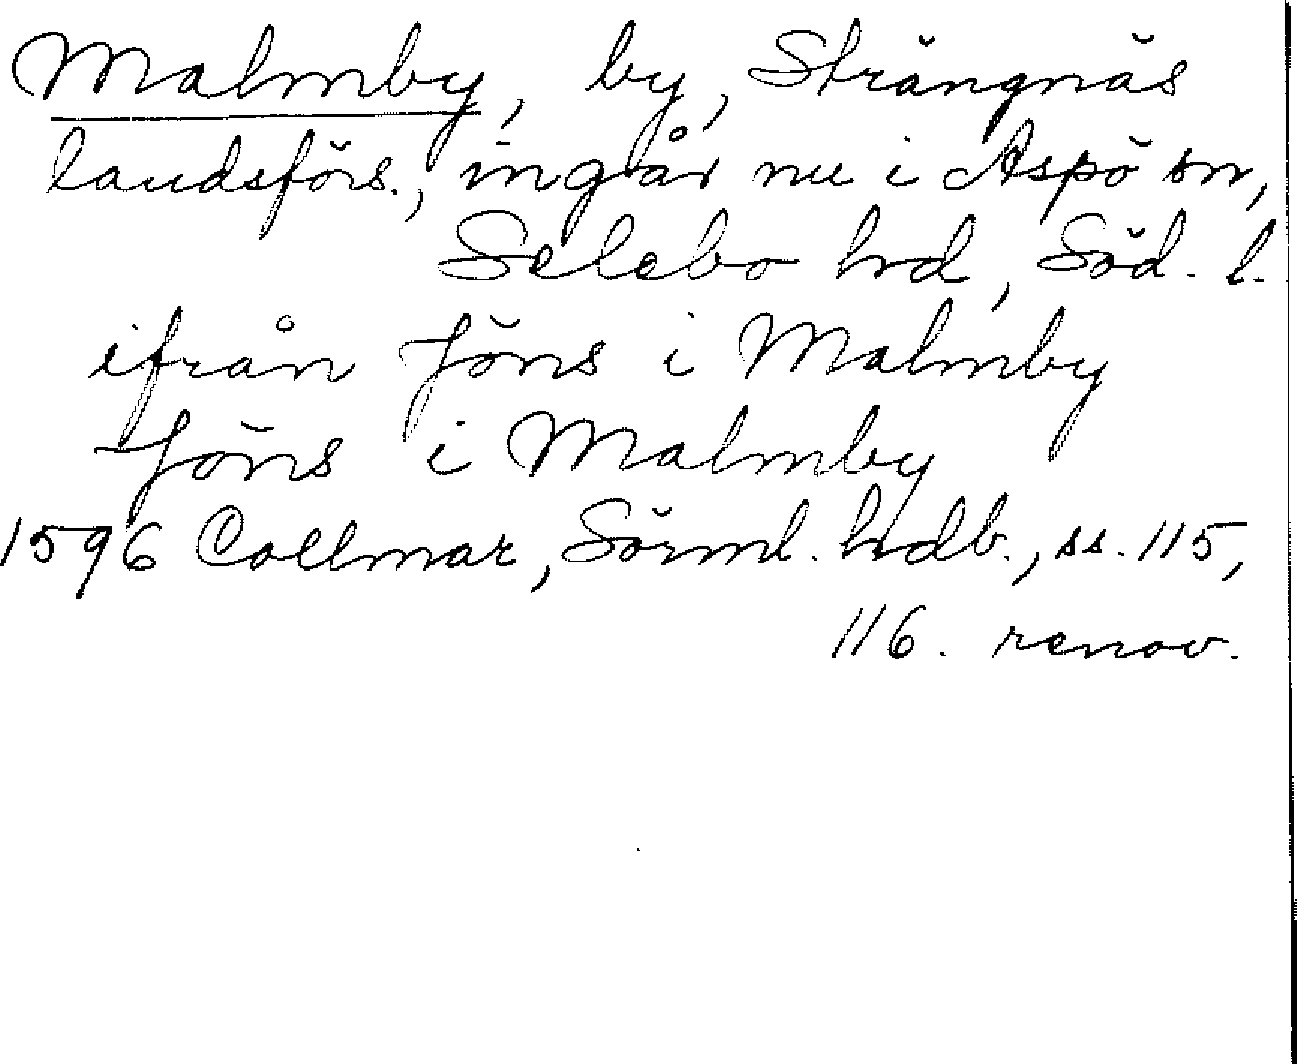 Malmby, by, Strängnäs
landsförs., ingår nu i Aspö sn,
Selebo hd, Söd. l.
ifrån Jöns i Malmby
Jöns i Malmby
1596 Collmar, Sörml. hdb., ss. 115,
116. renov.